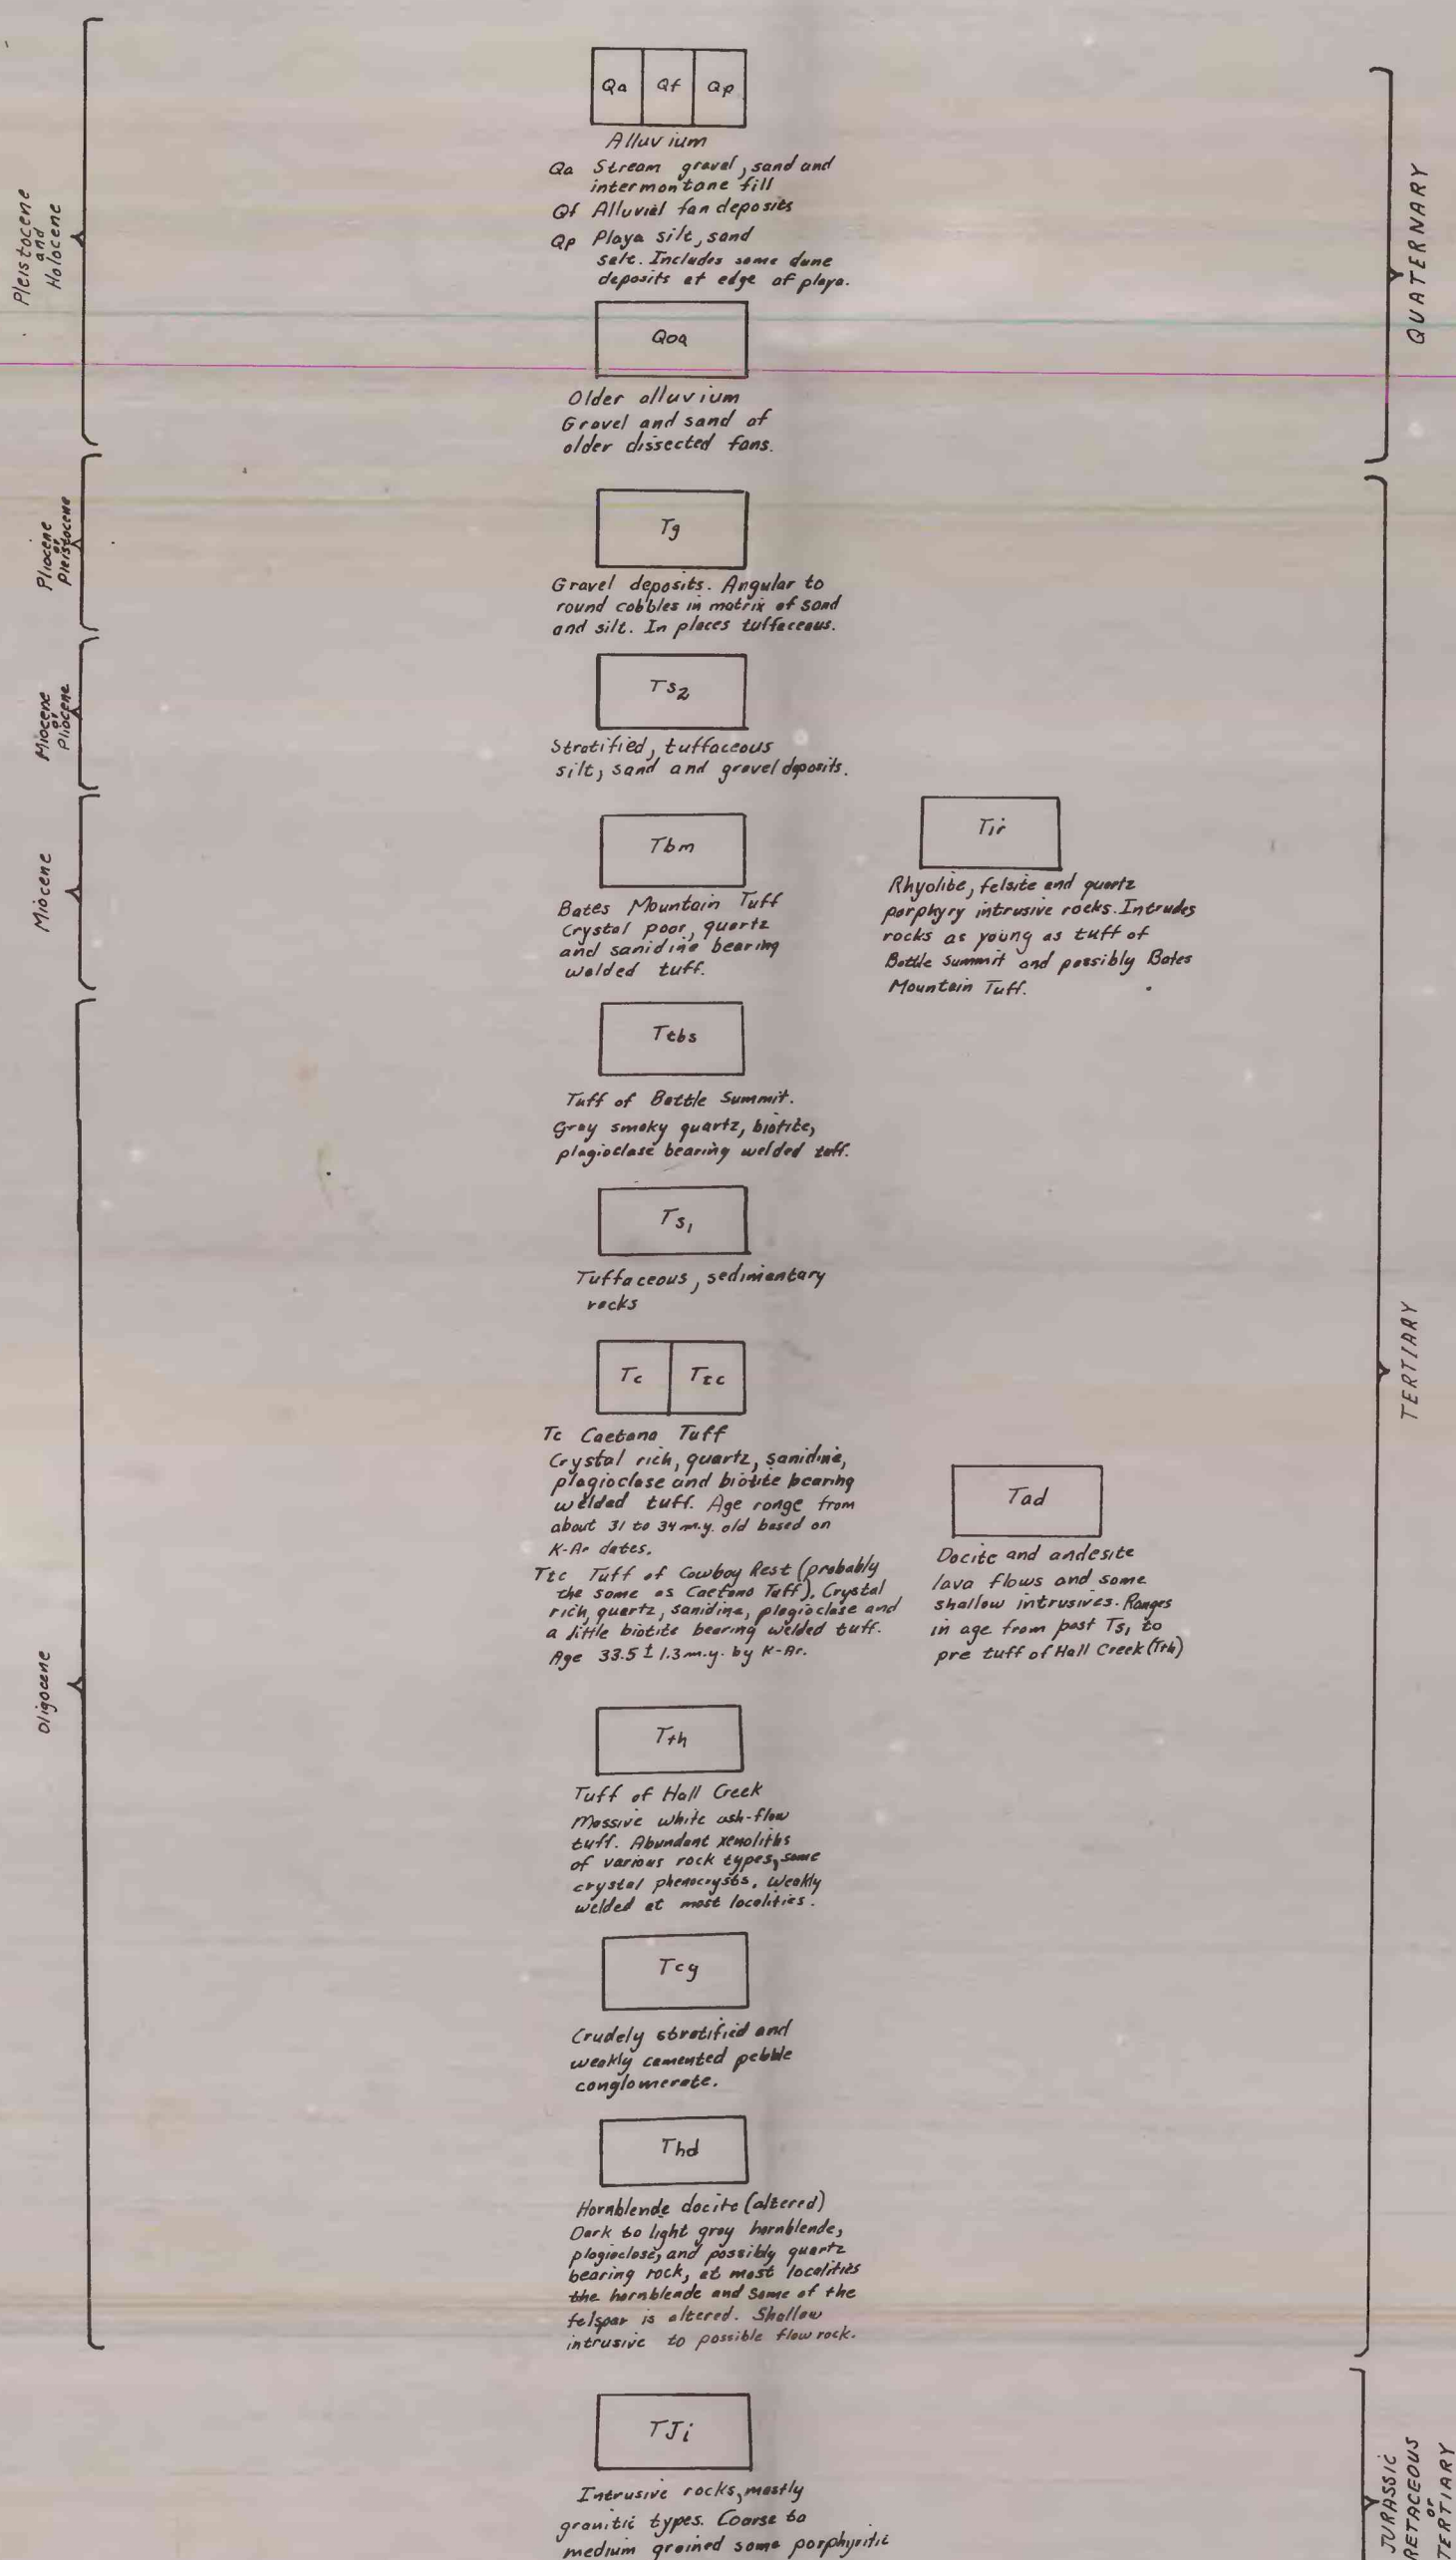 Qa Qf Qp
Alluvium
Qa Stream gravel, sand and
intermontane fill
Qf Alluvial fan deposits
Qp Playa silt, sand
salt. Includes some dune
deposits at edge of playa.
Qoa
Older alluvium
Gravel and sand of
older dissected fans.
Pleistocene
and
Holocene
QUATERNARY
Tg
Gravel deposits. Angular to
round cobbles in matrix of sand
and silt. In places tuffaceous.
Pliocene
or
Pleistocene
Ts2
Stratified, tuffaceous
silt, sand and gravel deposits.
Miocene
or
Pliocene
Tbm
Bates Mountain Tuff
Crystal poor, quartz
and sanidine bearing
welded tuff.
Tir
Rhyolite, felsite and quartz
porphyry intrusive rocks. Intrudes
rocks as young as tuff of
Battle Summit and possibly Bates
Mountain Tuff.
Miocene
Ttbs
Tuff of Battle Summit.
Gray smoky quartz, biotite,
plagioclase bearing welded tuff.
Ts1
Tuffaceous, sedimentary
rocks
Tc Ttc
Tc Caetano Tuff
Crystal rich, quartz, sanidine,
plagioclase and biotite bearing
welded tuff. Age range from
about 31 to 34 m.y. old based on
K-Ar dates.
Ttc Tuff of Cowboy Rest (probably
the same as Caetano Tuff). Crystal
rich, quartz, sanidine, plagioclase and
a little biotite bearing welded tuff.
Age 33.5 ± 1.3 m.y. by K-Ar.
Tad
Dacite and andesite
lava flows and some
shallow intrusives. Ranges
in age from post Ts1 to
pre tuff of Hall Creek (Trh)
Tth
Tuff of Hall Creek
Massive white ash-flow
tuff. Abundant xenoliths
of various rock types, some
crystal phenocrysts. Weakly
welded at most localities.
Tcg
Crudely stratified and
weakly cemented pebble
conglomerate.
Thd
Hornblende dacite (altered)
Dark to light gray hornblende,
plagioclase, and possibly quartz
bearing rock, at most localities
the hornblende and some of the
felspar is altered. Shallow
intrusive to possible flow rock.
Oligocene
TERTIARY
TJi
Intrusive rocks, mostly
granitic types. Coarse to
medium grained some porphyritic
JURASSIC
RETACEOUS
or
TERTIARY